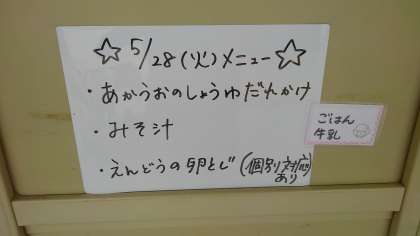 ☆ 5/28(火)メニュー ☆
・あかうおのしょうゆだれかけ
・みそ汁
・えんどうの卵とじ(個別対応あり)
ごはん
牛乳